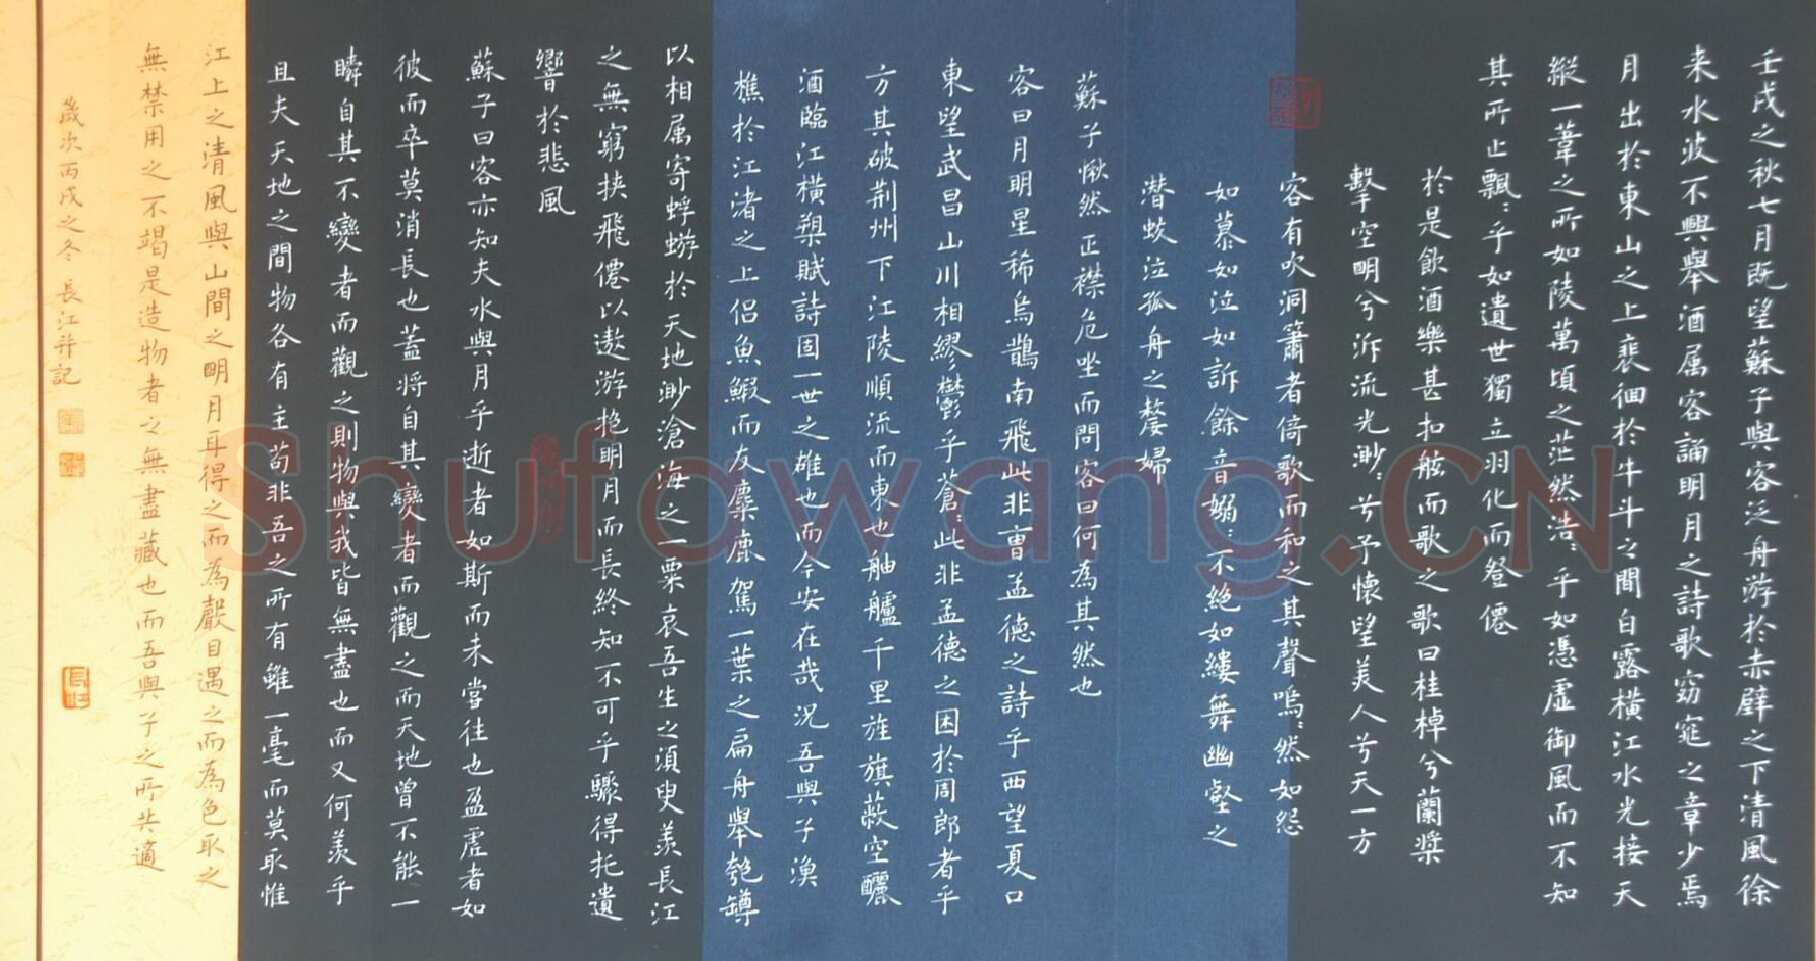 壬戌之秋七月既望蘇子與客泛舟游於赤壁之下清風徐
来水波不興舉酒属客誦明月之詩歌窈窕之章少焉
月出於東山之上裴徊於牛斗之間白露橫江水光接天
縱一葦之所如陵萬頃之茫然浩:乎如馮虛御風而不知
其所止飄:乎如遺世獨立羽化而登僊
於是飲酒樂甚扣舷而歌之歌曰桂棹兮蘭槳
擊空明兮泝流光渺:兮予懷望美人兮天一方
客有吹洞簫者倚歌而和之其聲嗚:然如怨
如慕如泣如訴餘音嫋:不絶如縷舞幽壑之
潛蛟泣孤舟之嫠婦
蘇子愀然正襟危坐而問客曰何為其然也
客曰月明星稀烏鵲南飛此非曹孟德之詩乎西望夏口
東望武昌山川相繆鬱乎蒼:此非孟德之困於周郎者乎
方其破荆州下江陵順流而東也舳艫千里旌旗蔽空釃
酒臨江橫槊賦詩固一世之雄也而今安在哉況吾與子漁
樵於江渚之上侣魚鰕而友麋鹿駕一葉之扁舟舉匏罇
以相属寄蜉蝣於天地渺滄海之一粟哀吾生之須臾羨長江
之無窮挾飛僊以遨游抱明月而長終知不可乎驟得托遺
響於悲風
蘇子曰客亦知夫水與月乎逝者如斯而未嘗往也盈虛者如
彼而卒莫消長也蓋將自其變者而觀之而天地曾不能一
瞬自其不變者而觀之則物與我皆無盡也而又何羨乎
且夫天地之間物各有主苟非吾之所有雖一毫而莫取惟
江上之清風與山間之明月耳得之而為聲目遇之而為色取之
無禁用之不竭是造物者之無盡藏也而吾與子之所共適
歲次丙戌之冬 長江并記
Shufawang.CN